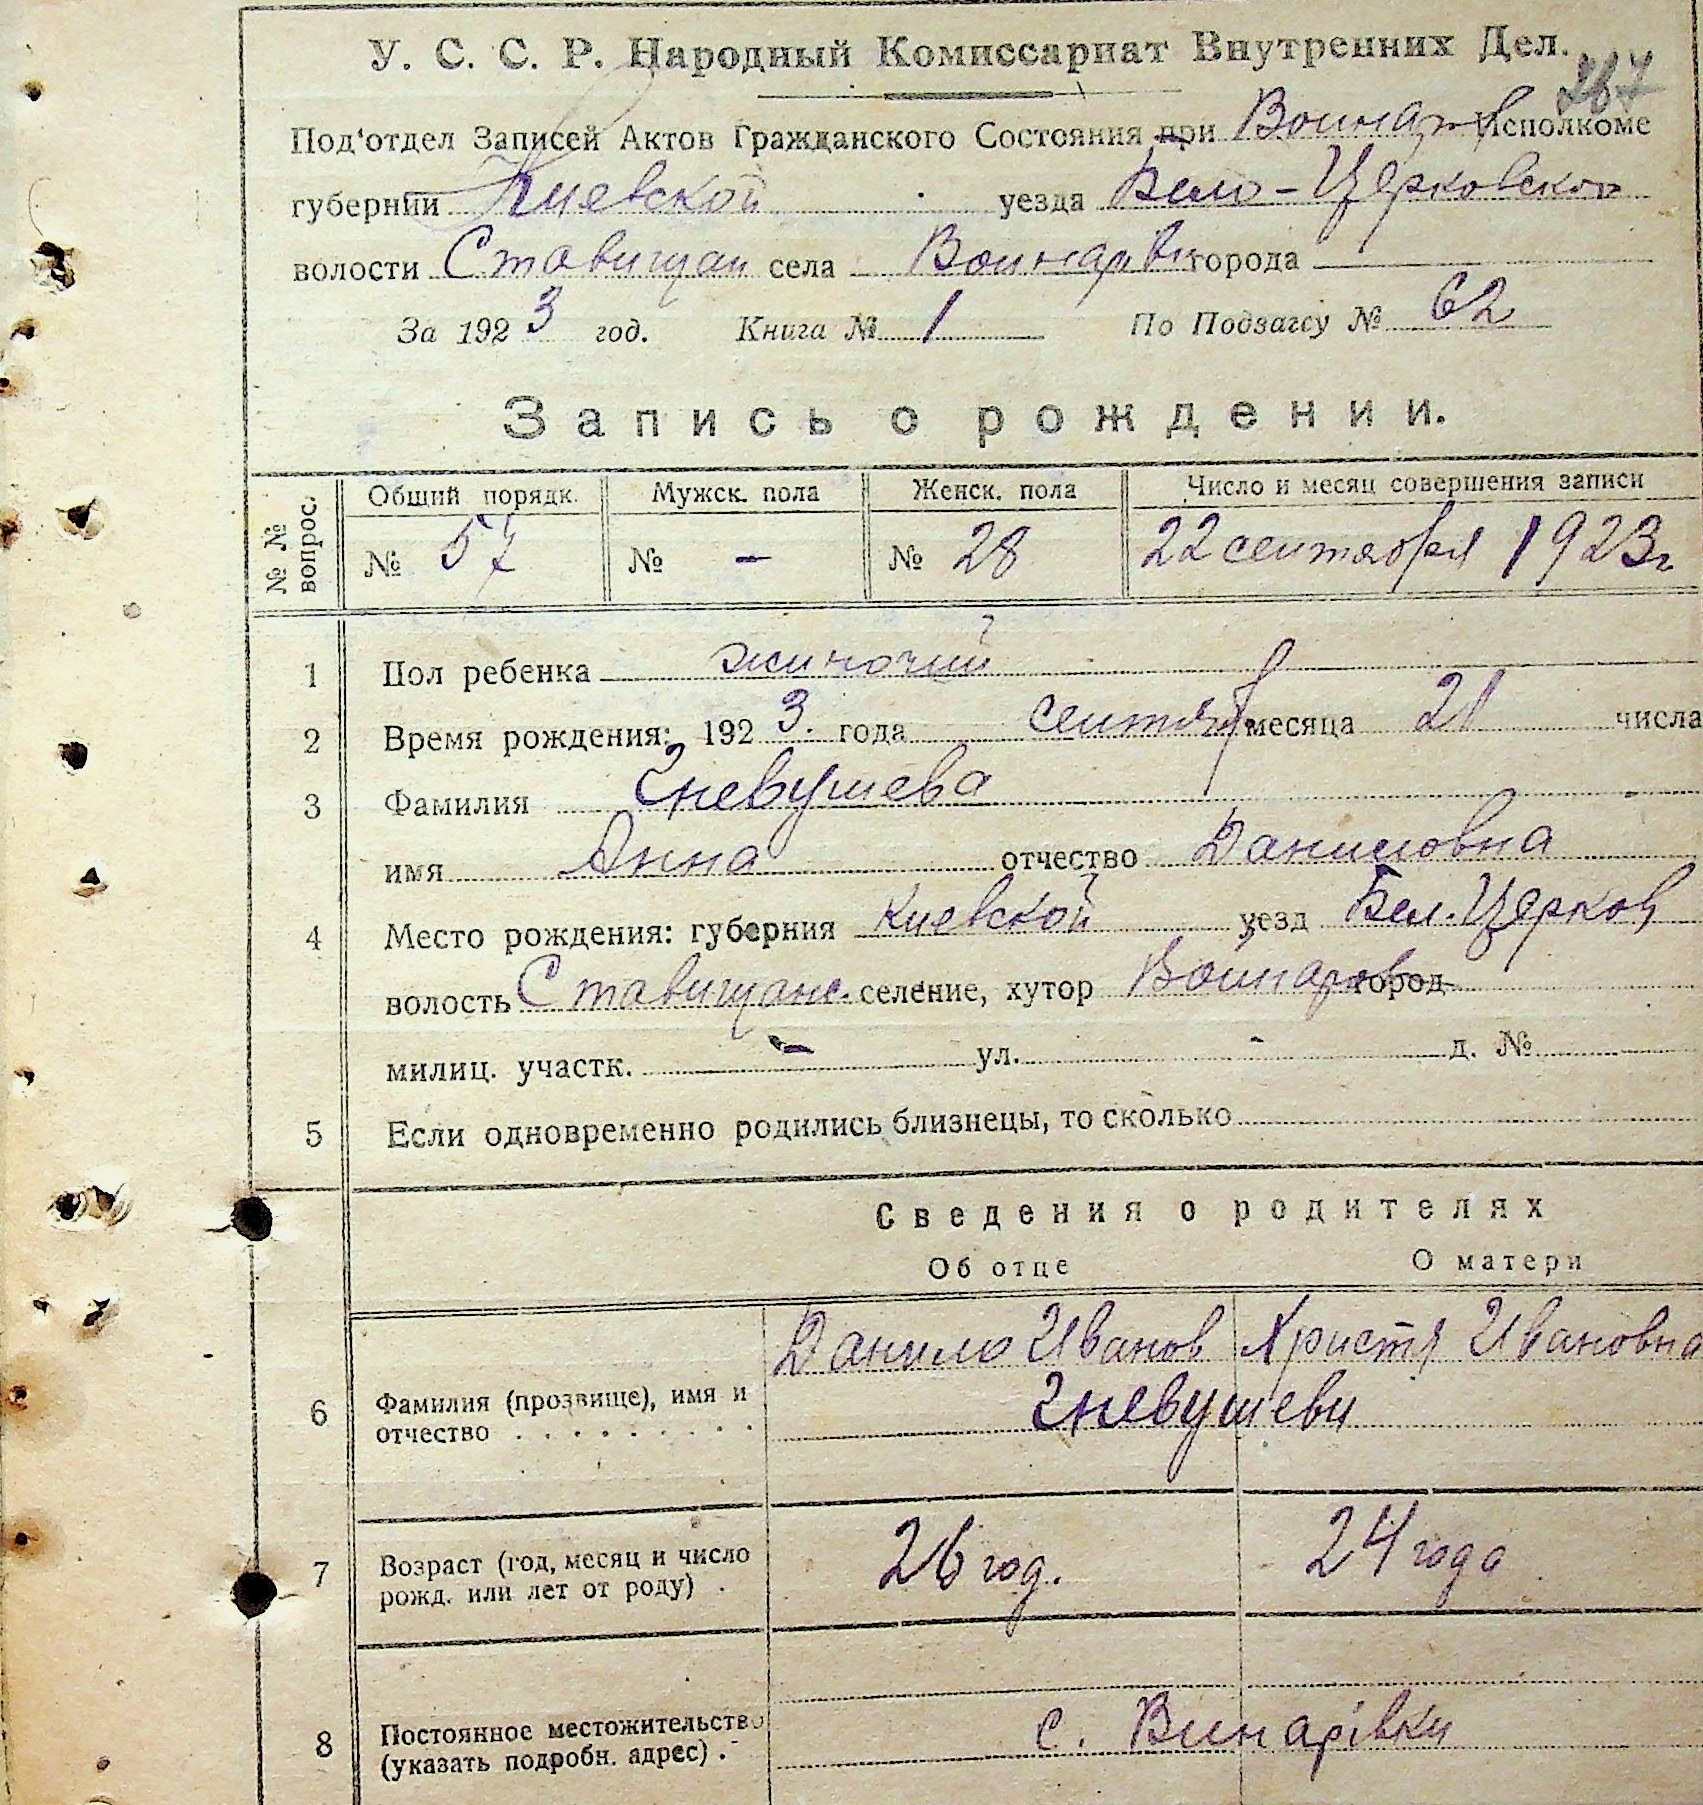 У. С. С. Р. Народный Комиссариат Внутренних Дел.
267
Под'отдел Записей Актов Гражданского Состояния при Воинар Исполкоме
губернии Киевской уезда Бело-Церковской
волости Ставищан села Воинарівк города
За 1923 год. Книга № 1 По Подзагсу № 62
Запись о рождении.
№ № вопрос. Общий порядк. Мужск. пола Женск. пола Число и месяц совершения записи
№ 57 № - № 28 22 сентября 1923 г
1 Пол ребенка жиночий
2 Время рождения: 1923. года сентяб месяца 21 числа
3 Фамилия Гневушева
имя Анна отчество Даниловна
4 Место рождения: губерния Киевской уезд Бел. Церков
волость Ставищанс. селение, хутор Воинаров город
милиц. участк. - ул. - д. №
5 Если одновременно родились близнецы, то сколько
Сведения о родителях
Об отце О матери
Данило Иванов Христя Ивановна
6 Фамилия (прозвище), имя и
отчество Гневушеви
7 Возраст (год, месяц и число
рожд. или лет от роду) . 26 год. 24 года
8 Постоянное местожительство
(указать подробн. адрес) . с. Винарівки